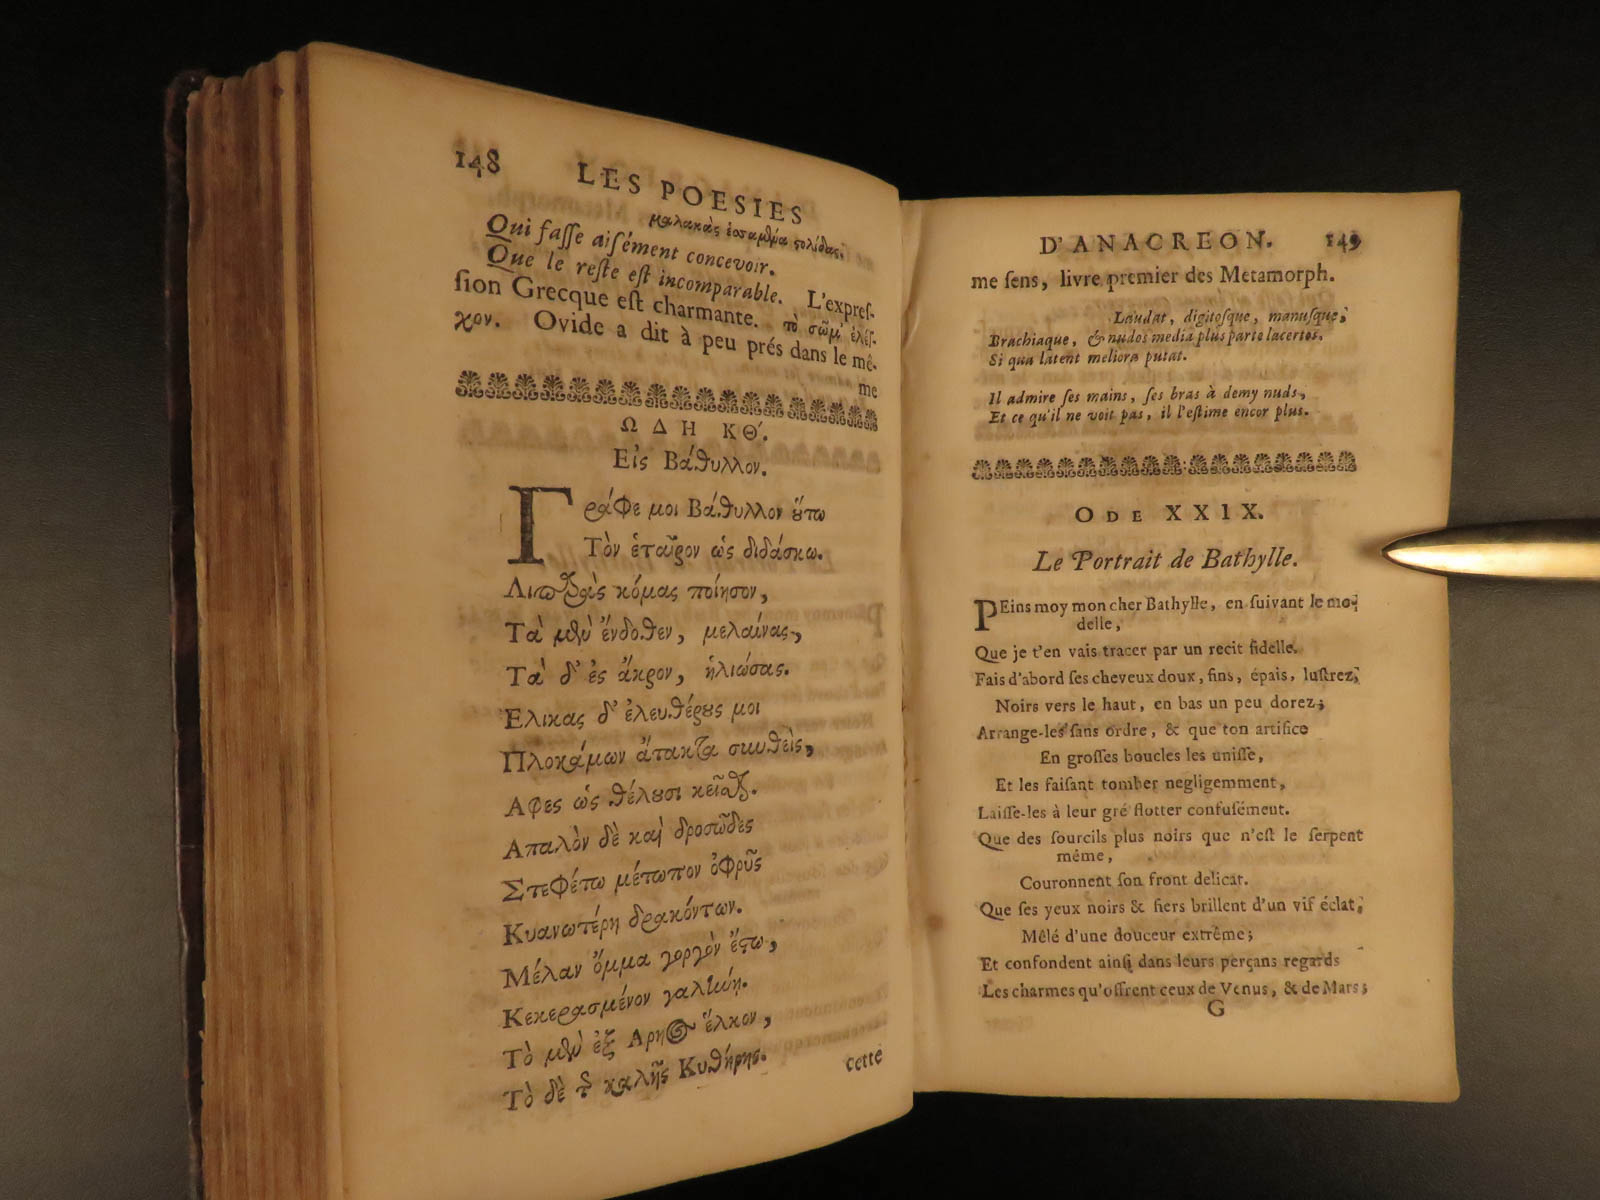 148 LES POESIES
μαλακὰς
Qui faſſe aiſément concevoir.
Que le reſte eſt incomparable. L'expreſ-
ſion Grecque eſt charmante. τὸ σῶμ' ἐλέγ-
χον. Ovide a dit à peu prés dans le mê-
me
ΩΔΗ ΚΘ'.
Εἰς Βάθυλλον.
Γράφε μοι Βάθυλλον ὅτω
Τὸν ἑταῖρον ὡς διδάσκω.
Λιπαρὰς κόμας ποίησον,
Τὰ μὲν ἔνδοθεν, μελαίνας,
Τὰ δ' ἐς ἄκρον, ἡλιώσας.
Ἕλικας δ' ἐλευθέρους μοι
Πλοκάμων ἄτακτα συνθεὶς,
Αφες ὡς θέλουσι κεῖσθαι.
Απαλὸν δὲ καὶ δροσῶδες
Στεφέτω μέτωπον ὀφρῦς
Κυανωτέρη δρακόντων.
Μέλαν ὄμμα γοργὸν ἔστω,
Κεκερασμένον γαλήνῃ.
Τὸ μὲν ἐξ Αρηος ἕλκον,
Τὸ δὲ τῆς καλῆς Κυθήρης.
cette
D'ANACREON. 149
me ſens, livre premier des Metamorph.
Laudat, digitoſque, manuſque,
Brachiaque, & nudos media plus parte lacertos,
Si qua latent meliora putat.
Il admire ſes mains, ſes bras à demy nuds,
Et ce qu'il ne voit pas, il l'eſtime encor plus.
ODE XXIX.
Le Portrait de Bathylle.
PEins moy mon cher Bathylle, en ſuivant le mo-
delle,
Que je t'en vais tracer par un recit fidelle.
Fais d'abord ſes cheveux doux, fins, épais, luſtrez,
Noirs vers le haut, en bas un peu dorez;
Arrange-les ſans ordre, & que ton artifice
En groſſes boucles les uniſſe,
Et les faiſant tomber negligemment,
Laiſſe-les à leur gré flotter confuſément.
Que des ſourcils plus noirs que n'eſt le ſerpent
même,
Couronnent ſon front delicat.
Que ſes yeux noirs & fiers brillent d'un vif éclat,
Mêlé d'une douceur extrême;
Et confondent ainſi dans leurs perçans regards
Les charmes qu'offrent ceux de Venus, & de Mars;
G